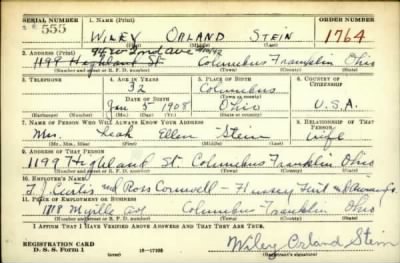 SERIAL NUMBER
1. NAME (Print)
ORDER NUMBER
555
WILEY ORLAND STEIN
1764
(First) (Middle) (Last)
2. ADDRESS (Print)
1199 Highland St Columbus Franklin Ohio
(Number and street or R. F. D. number) (Town) (County) (State)
3. TELEPHONE
4. AGE IN YEARS
5. PLACE OF BIRTH
6. COUNTRY OF CITIZENSHIP
32
Columbus
(Town or county)
DATE OF BIRTH
Jan 5 1908
Ohio
U.S.A.
(Exchange) (Number)
(Mo.) (Day) (Yr.)
(State or country)
7. NAME OF PERSON WHO WILL ALWAYS KNOW YOUR ADDRESS
8. RELATIONSHIP OF THAT PERSON
Mrs. Leah Ellen Stein
wife
(Mr., Mrs., Miss) (First) (Middle) (Last)
9. ADDRESS OF THAT PERSON
1199 Highland St Columbus Franklin Ohio
(Number and street or R. F. D. number) (Town) (County) (State)
10. EMPLOYER'S NAME
Curtis and Ross Cornwell
11. PLACE OF EMPLOYMENT OR BUSINESS
Columbus Franklin Ohio
(Number and street or R. F. D. number) (Town) (County) (State)
I AFFIRM THAT I HAVE VERIFIED ABOVE ANSWERS AND THAT THEY ARE TRUE.
REGISTRATION CARD
D. S. S. FORM 1
Wiley Orland Stein
(Registrant's signature)